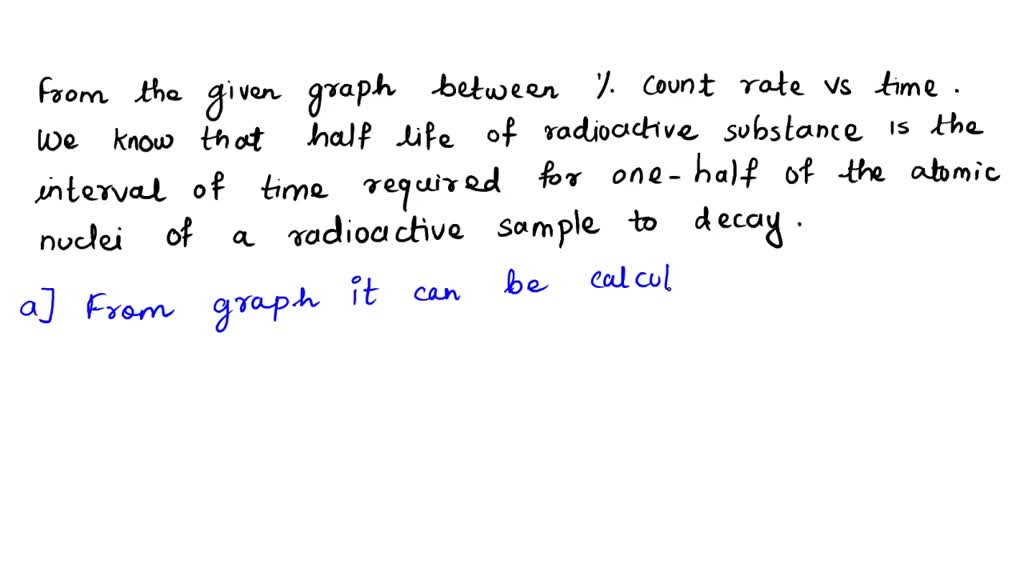 From the given graph between % count rate vs time.
We know that half life of radioactive substance is the
interval of time required for one-half of the atomic
nuclei of a radioactive sample to decay.
a] From graph it can be calcul